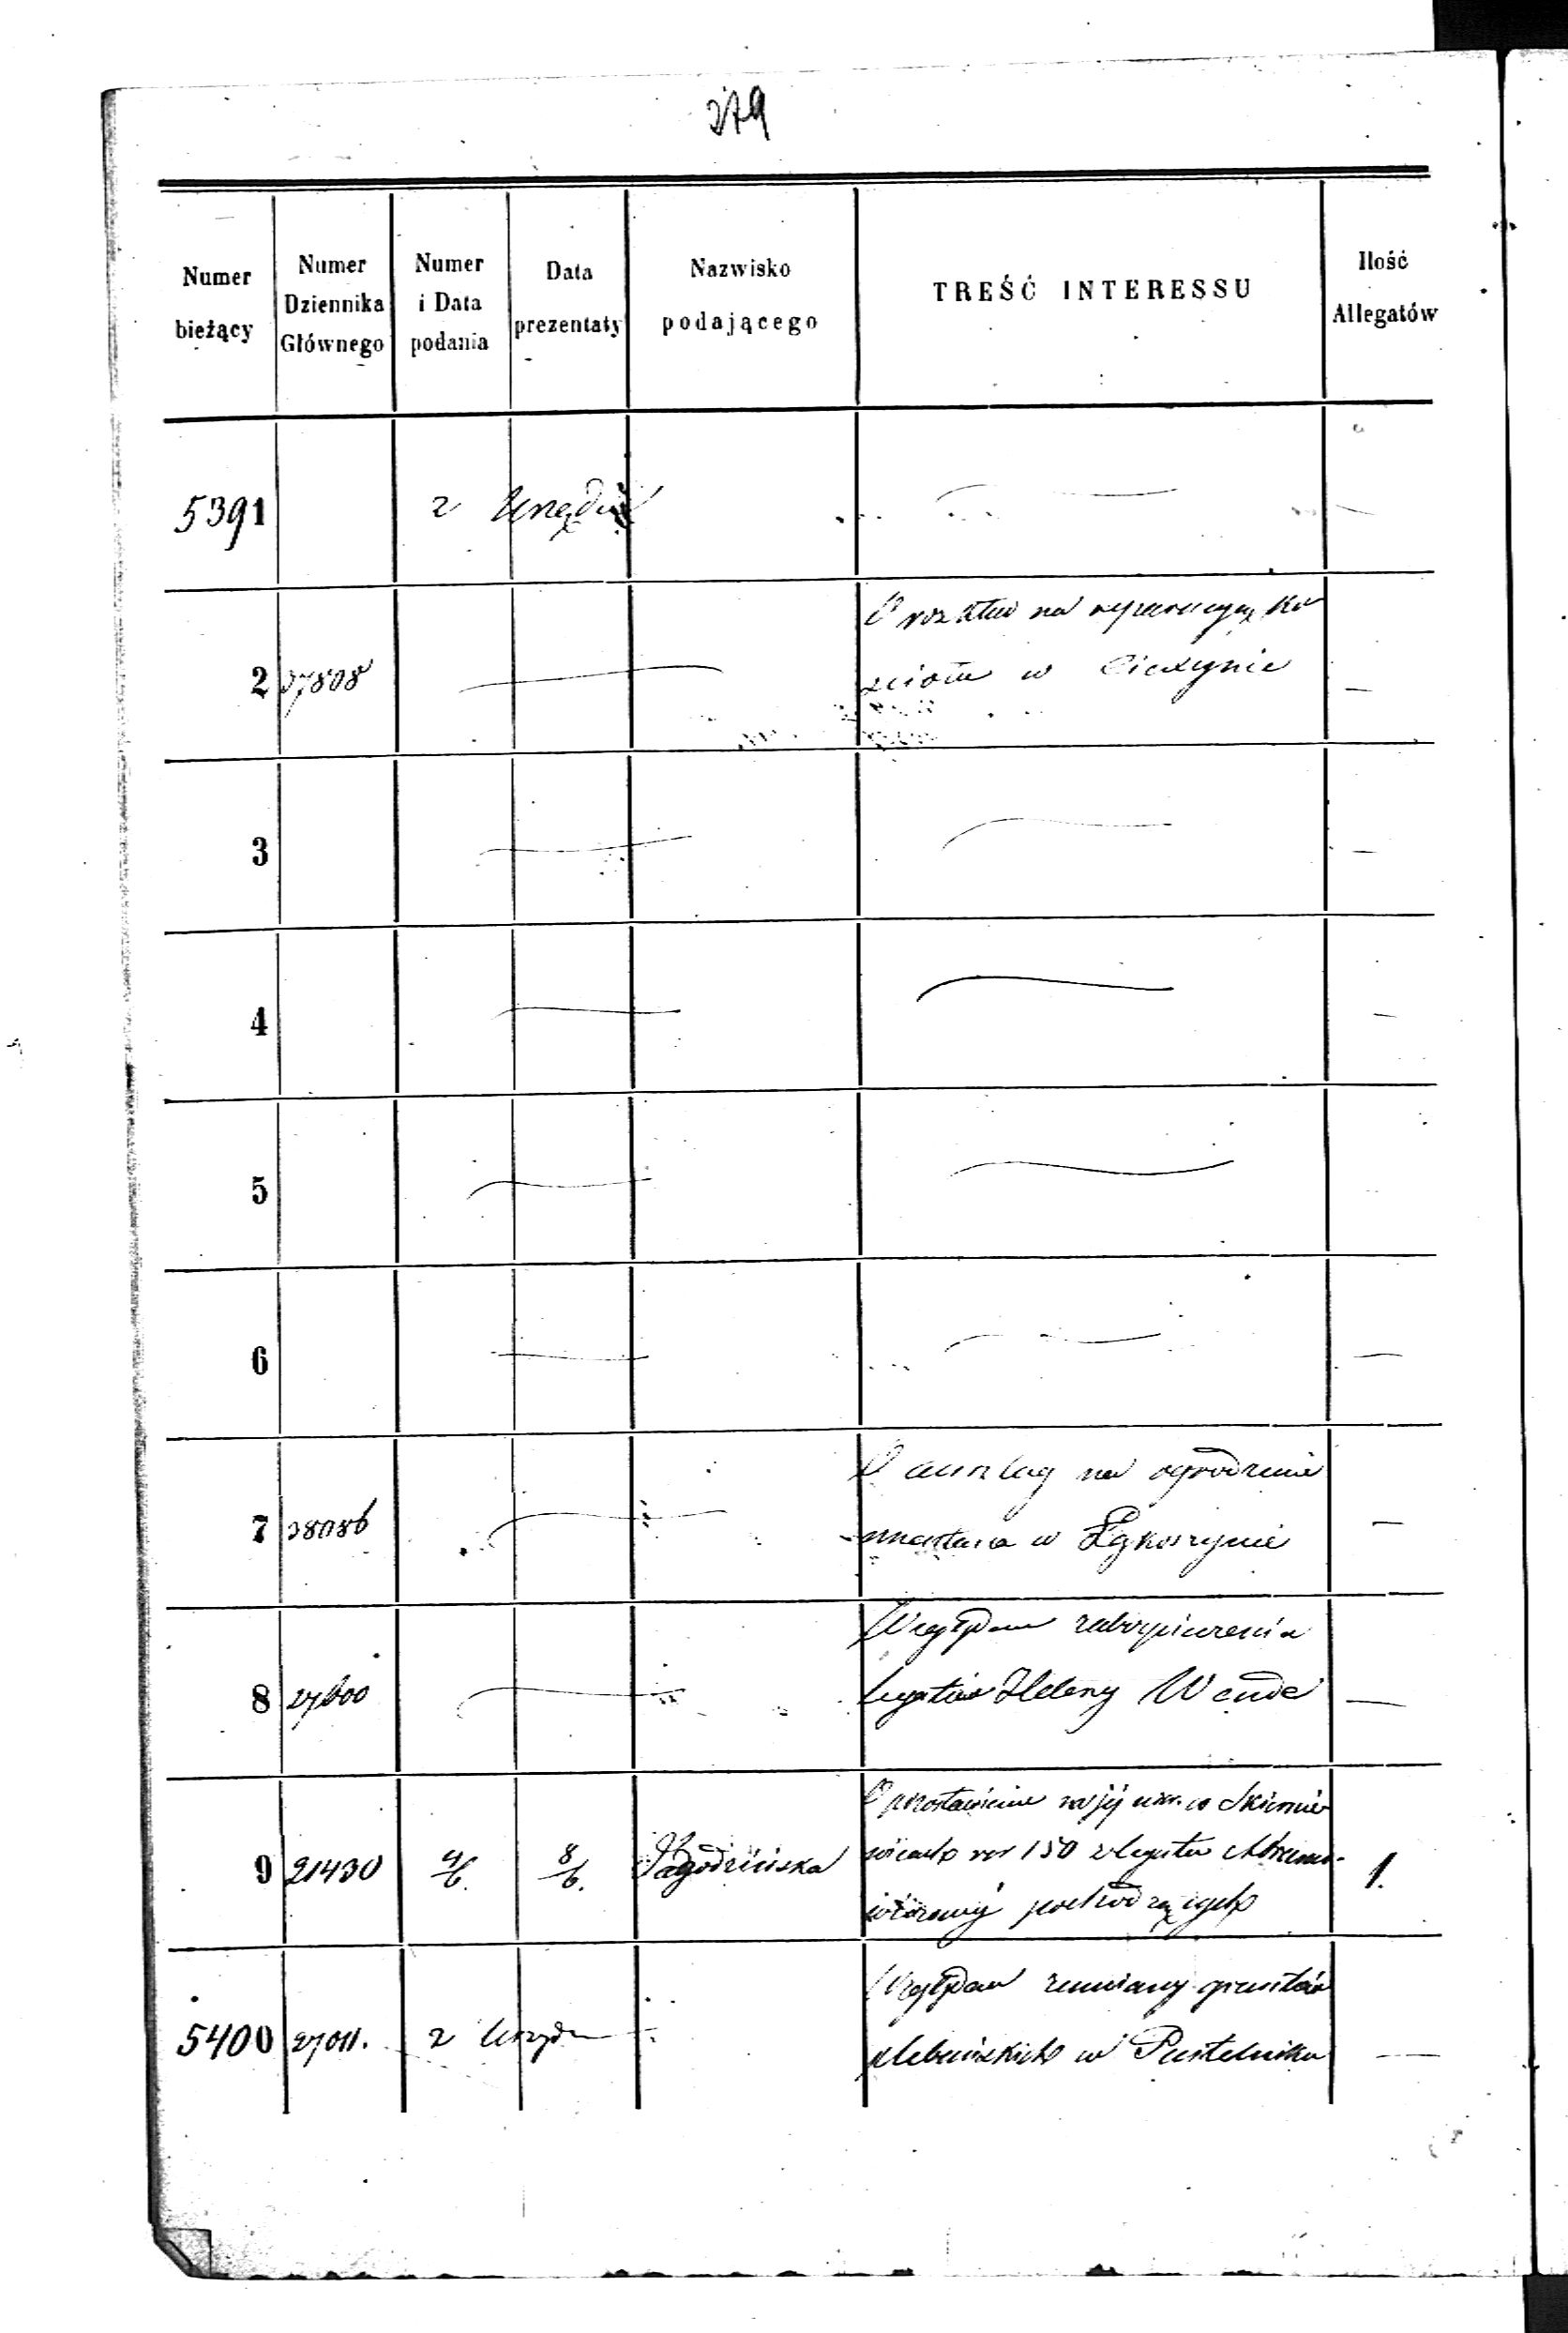 379
Numer bieżący
Numer Dziennika Głównego
Numer i Data podania
Data prezentaty
Nazwisko podającego
TREŚĆ INTERESSU
Ilość Allegatów
5391 z Urzędu —
2 37808 — O rozkład na reparacyą ko
ścioła w —
3 — —
4 — —
5 —
6 — —
7 38086 — O na ogrodzenie
w Łękoszynie —
8 27600 — Względem zabezpieczenia
legatów Heleny Wende —
9 21430 4/6. 8/6. Jagodzińska O na jéj w Skiernie
wicach rsr 150 z legatu
pochodzących 1.
5400 27011. z Urzędu Względem zamiany gruntów
plebańskich w Pustelniku —